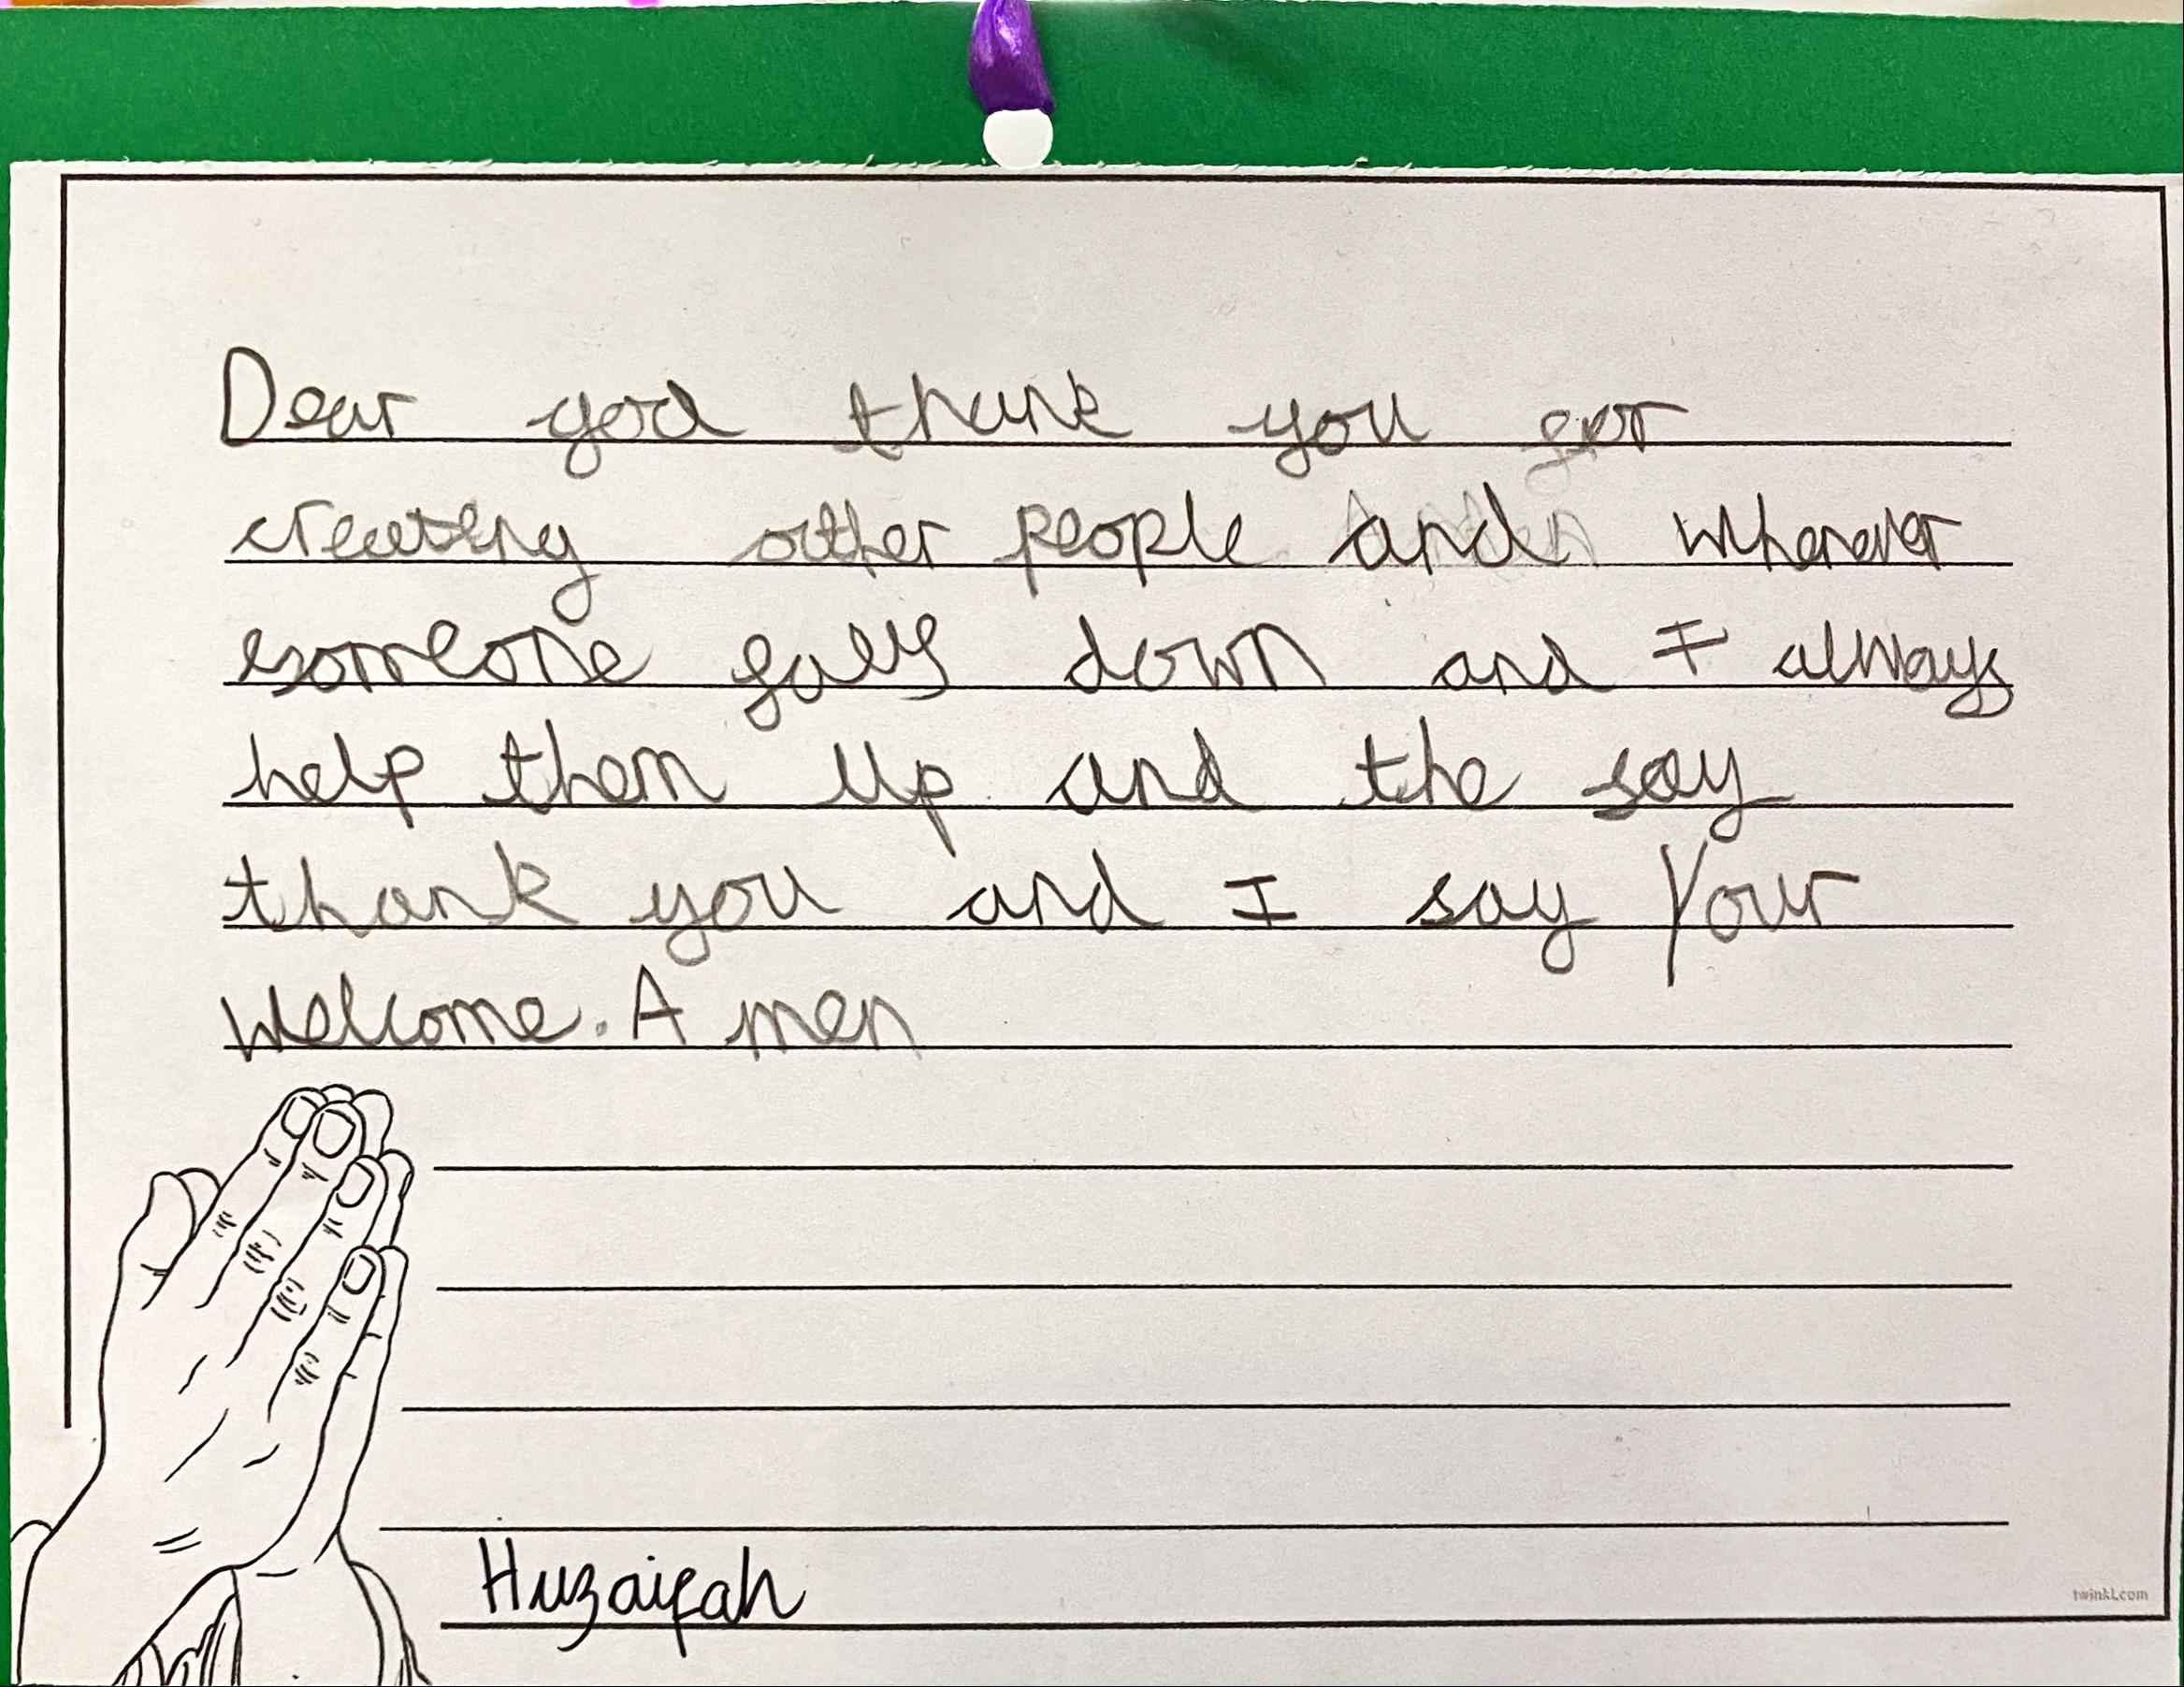 Dear god thank you for
creating other people and wherever
someone falls down and I always
help them up and the say
thank you and I say Your
Welcome. A men
Huzaifah
twinkl.com